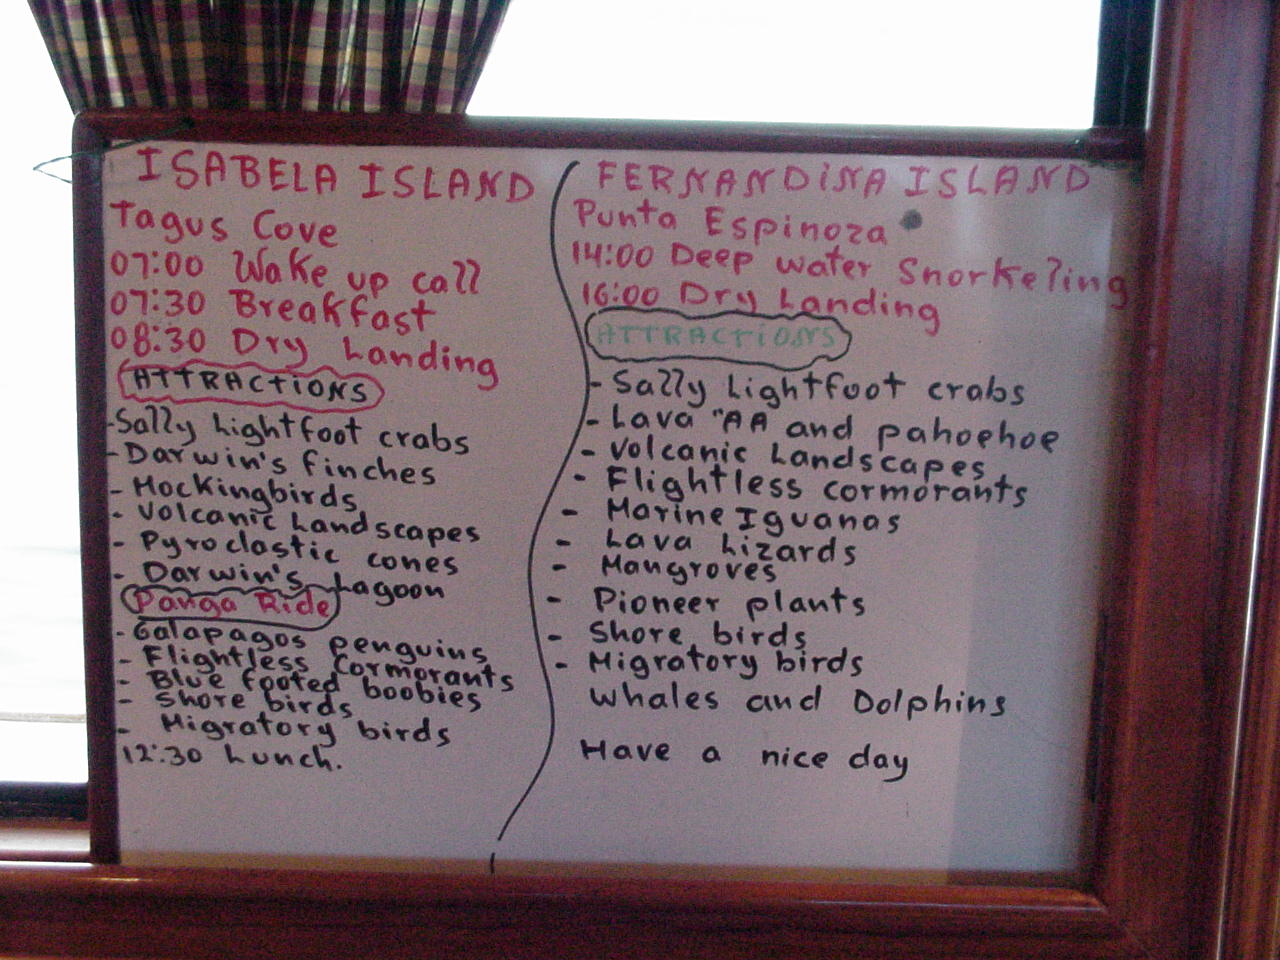 ISABELA ISLAND
Tagus Cove
07:00 Wake up call
07:30 Breakfast
08:30 Dry Landing
ATTRACTIONS
-Sally Lightfoot crabs
-Darwin's finches
- Mockingbirds
- Volcanic Landscapes
- Pyroclastic cones
- Darwin's Lagoon
Panga Ride
- Galapagos penguins
- Flightless Cormorants
- Blue footed boobies
- Shore birds
- Migratory birds
12:30 Lunch.
FERNANDiNA ISLAND
Punta Espinoza
14:00 Deep water Snorkeling
16:00 Dry Landing
ATTRACTiONS
- Sally Lightfoot crabs
- Lava "AA and pahoehoe
- Volcanic Landscapes
- Flightless cormorants
- Marine Iguanas
- Lava Lizards
- Mangroves
- Pioneer plants
- Shore birds
- Migratory birds
Whales and Dolphins
Have a nice day